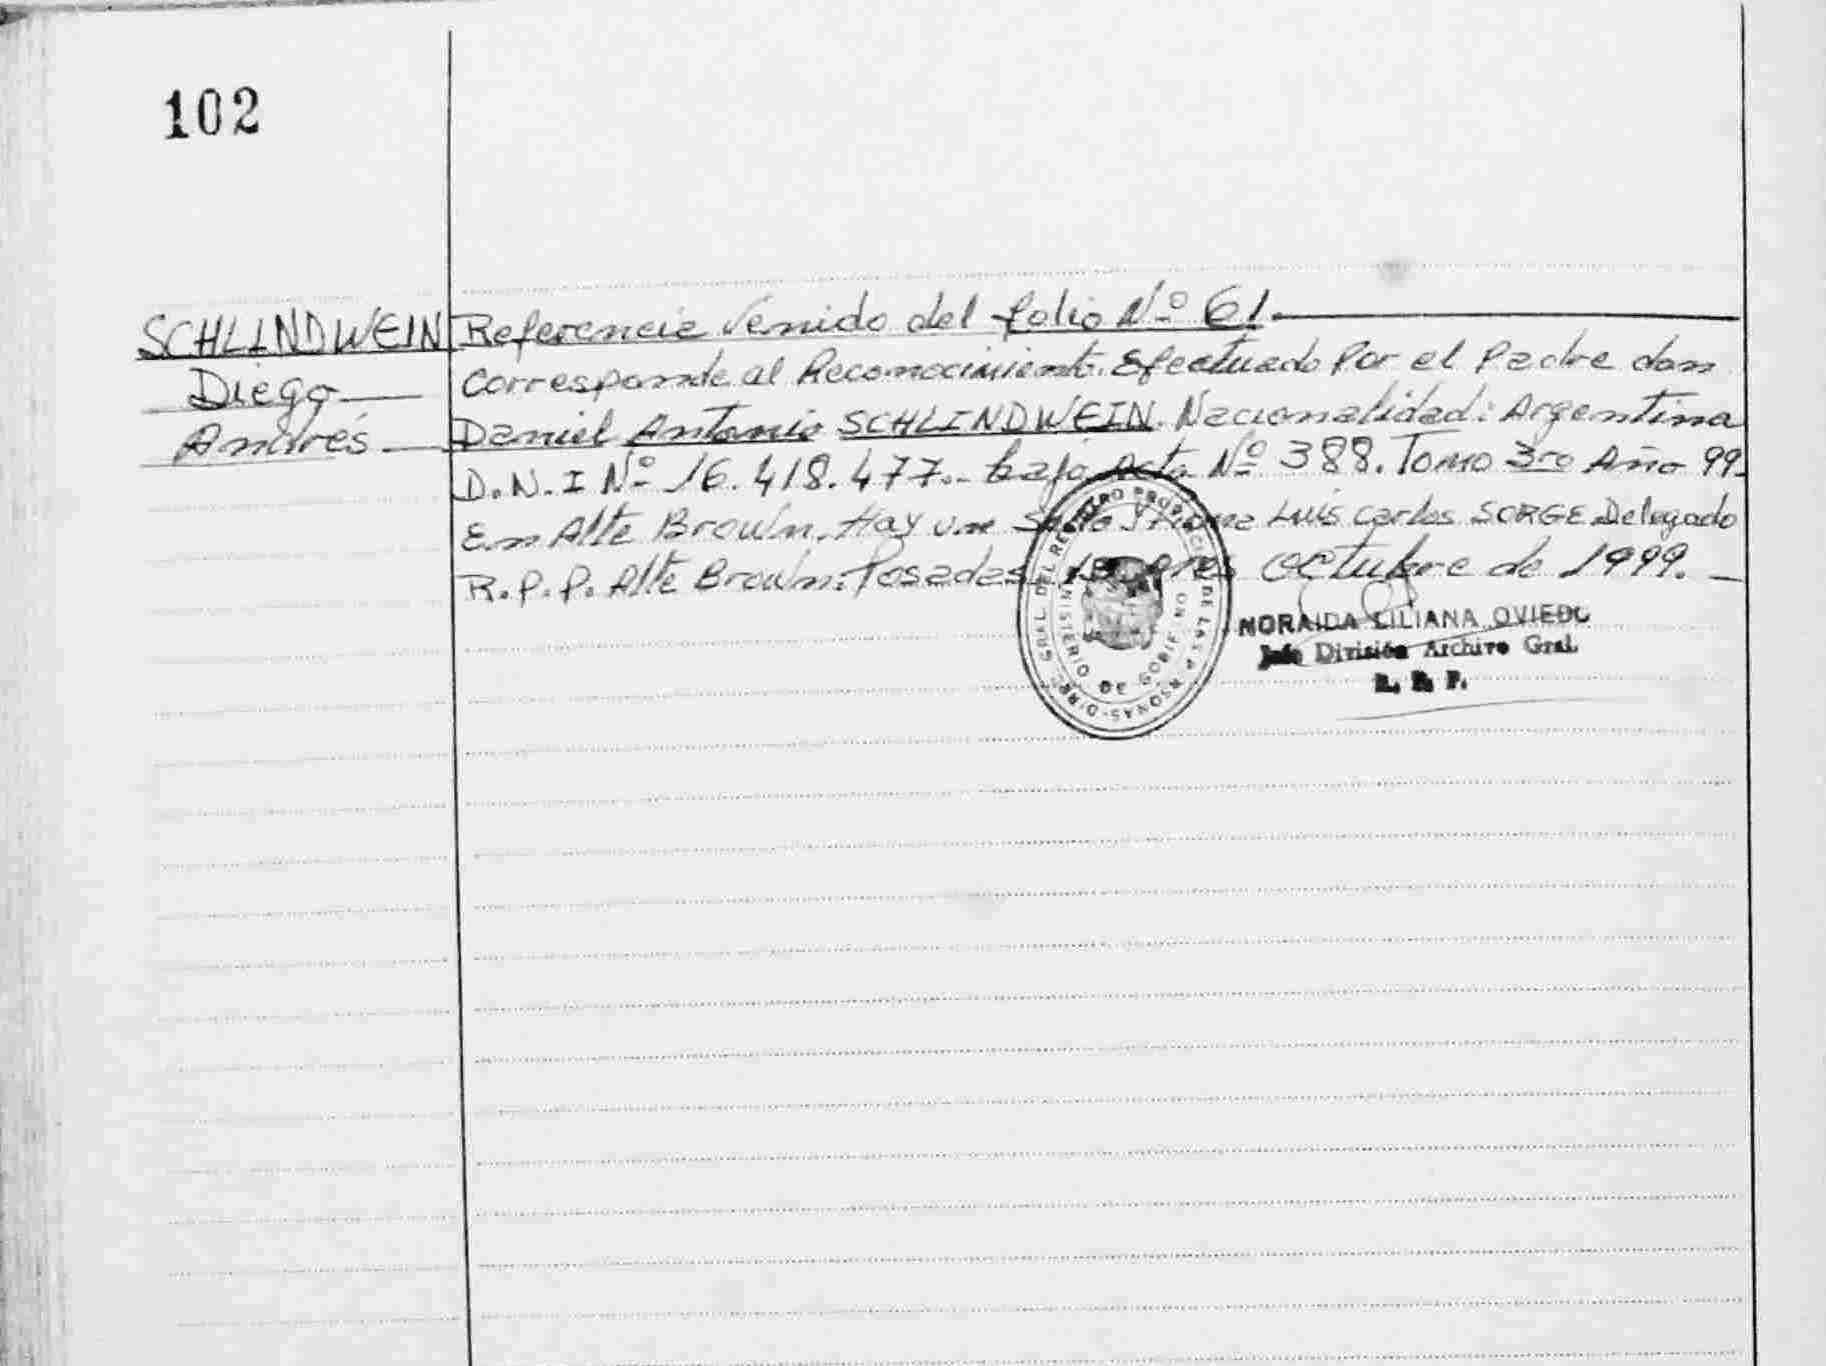 102
SCHLINDWEIN
Diego
Andrés
Referencia Venido del folio Nº 61.
Corresponde al Reconocimiento. Efectuado Por el Padre don
Daniel Antonio SCHLINDWEIN. Nacionalidad: Argentina
D.N.I Nº 16.418.477.- bajo Acta Nº 388. Tomo 3ro Año 99-
En Alte Brown. Hay un Sello y Firma Luis Carlos SORGE Delegado
R.P.P. Alte Brown: Posadas, Octubre de 1999. -
DEL REGISTRO PROVINCIAL DE LAS PERSONAS
MINISTERIO DE GOBIERNO
NORAIDA LILIANA OVIEDO
Jefe División Archivo Gral.
R. P. P.